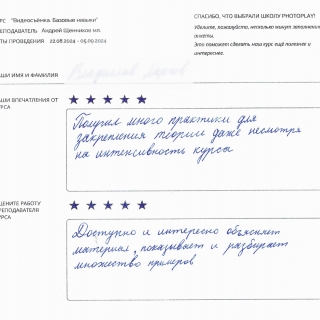 РС "Видеосъёмка. Базовые навыки"
РЕПОДАВАТЕЛЬ Андрей Щенников мл.
ТЫ ПРОВЕДЕНИЯ 22.08.2024 - 05.09.2024
СПАСИБО, ЧТО ВЫБРАЛИ ШКОЛУ PHOTOPLAY!
Уделите, пожалуйста, несколько минут заполнению
анкеты.
Это поможет сделать наш курс ещё полезнее и
интереснее.
АШИ ИМЯ И ФАМИЛИЯ
АШИ ВПЕЧАТЛЕНИЯ ОТ
УРСА
Получил много практики для
закрепления теории даже несмотря
на интенсивность курса
ЦЕНИТЕ РАБОТУ
РЕПОДАВАТЕЛЯ
УРСА
Доступно и интересно объясняет
материал, показывает и разбирает
множество примеров